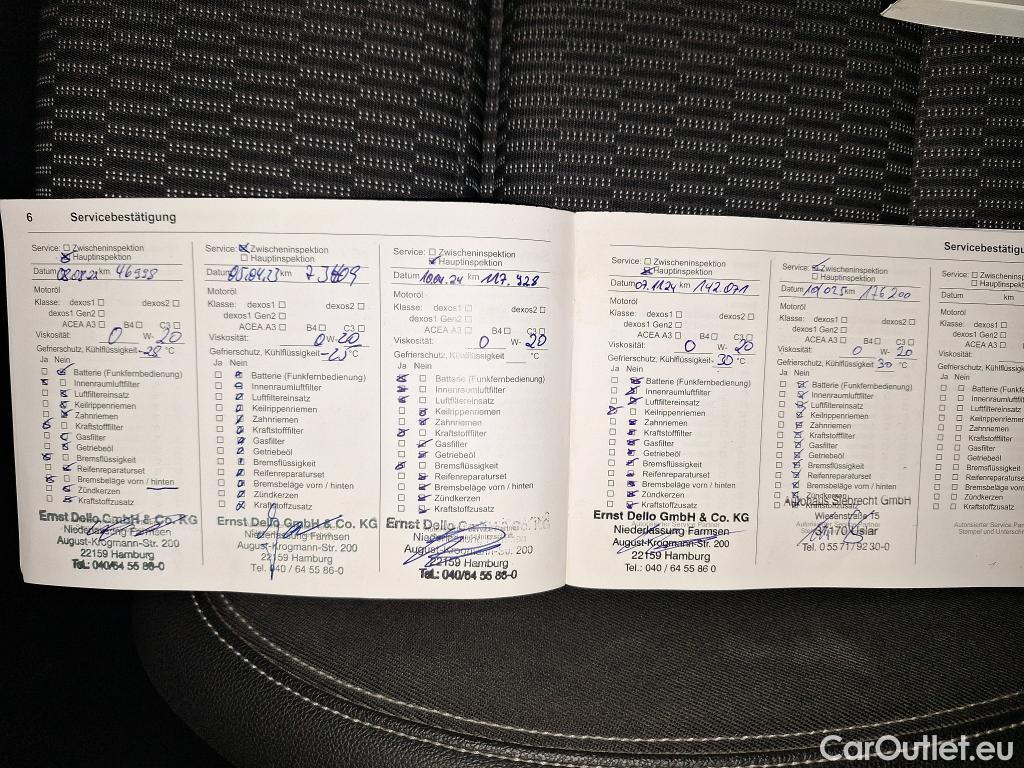 6 Servicebestätigung
Service: Zwischeninspektion
Hauptinspektion
Datum km 46998
Motoröl
Klasse: dexos1 dexos2
dexos1 Gen2
ACEA A3 B4 C3
Viskosität: 0 W- 20
Gefrierschutz, Kühlflüssigkeit -28 °C
Ja Nein
Batterie (Funkfernbedienung)
Innenraumluftfilter
Luftfiltereinsatz
Keilrippenriemen
Zahnriemen
Kraftstofffilter
Gasfilter
Getriebeöl
Bremsflüssigkeit
Reifenreparaturset
Bremsbeläge vorn / hinten
Zündkerzen
Kraftstoffzusatz
Ernst Dello GmbH & Co. KG
Niederlassung Farmsen
August-Krogmann-Str. 200
22159 Hamburg
Tel.: 040/64 55 86-0
Service: Zwischeninspektion
Hauptinspektion
Datum 05.04.23 km
Motoröl
Klasse: dexos1 dexos2
dexos1 Gen2
ACEA A3 B4 C3
Viskosität: 0 W- 20
Gefrierschutz, Kühlflüssigkeit °C
Ja Nein
Batterie (Funkfernbedienung)
Innenraumluftfilter
Luftfiltereinsatz
Keilrippenriemen
Zahnriemen
Kraftstofffilter
Gasfilter
Getriebeöl
Bremsflüssigkeit
Reifenreparaturset
Bremsbeläge vorn / hinten
Zündkerzen
Kraftstoffzusatz
Ernst Dello GmbH & Co. KG
Niederlassung Farmsen
August-Krogmann-Str. 200
22159 Hamburg
Tel. 040 / 64 55 86-0
Service: Zwischeninspektion
Hauptinspektion
Datum 10.04.24 km 117.928
Motoröl
Klasse: dexos1 dexos2
dexos1 Gen2
ACEA A3 B4 C3
Viskosität: 0 W- 20
Gefrierschutz, Kühlflüssigkeit °C
Ja Nein
Batterie (Funkfernbedienung)
Innenraumluftfilter
Luftfiltereinsatz
Keilrippenriemen
Zahnriemen
Kraftstofffilter
Gasfilter
Getriebeöl
Bremsflüssigkeit
Reifenreparaturset
Bremsbeläge vorn / hinten
Zündkerzen
Kraftstoffzusatz
Ernst Dello GmbH & Co. KG
Niederlassung Farmsen
August-Krogmann-Str. 200
22159 Hamburg
Tel.: 040/64 55 86-0
Servicebestätigu
Service: Zwischeninspektion
Hauptinspektion
Datum 07.11.24 km 142.071
Motoröl
Klasse: dexos1 dexos2
dexos1 Gen2
ACEA A3 B4 C3
Viskosität: 0 W- 20
Gefrierschutz, Kühlflüssigkeit -30 °C
Ja Nein
Batterie (Funkfernbedienung)
Innenraumluftfilter
Luftfiltereinsatz
Keilrippenriemen
Zahnriemen
Kraftstofffilter
Gasfilter
Getriebeöl
Bremsflüssigkeit
Reifenreparaturset
Bremsbeläge vorn / hinten
Zündkerzen
Kraftstoffzusatz
Ernst Dello GmbH & Co. KG
Niederlassung Farmsen
August-Krogmann-Str. 200
22159 Hamburg
Tel.: 040 / 64 55 86 0
Service: Zwischeninspektion
Hauptinspektion
Datum km 176 200
Motoröl
Klasse: dexos1 dexos2
dexos1 Gen2
ACEA A3 B4 C3
Viskosität: 0 W- 20
Gefrierschutz, Kühlflüssigkeit 30 °C
Ja Nein
Batterie (Funkfernbedienung)
Innenraumluftfilter
Luftfiltereinsatz
Keilrippenriemen
Zahnriemen
Kraftstofffilter
Gasfilter
Getriebeöl
Bremsflüssigkeit
Reifenreparaturset
Bremsbeläge vorn / hinten
Zündkerzen
Kraftstoffzusatz
Autohaus Siebrecht GmbH
Wiesenstraße 15
37170 Uslar
Tel. 0 55 71/92 30-0
Service: Zwischeninspekti
Hauptinspekt
Datum km
Motoröl
Klasse: dexos1
dexos1 Gen2
ACEA A3 B4
Viskosität:
Gefrierschutz, Kühlflüssigkeit
Ja Nein
Batterie (Funkfernb
Innenraumluftfilter
Luftfiltereinsatz
Keilrippenriemen
Zahnriemen
Kraftstofffilter
Gasfilter
Getriebeöl
Bremsflüssigkeit
Reifenreparaturse
Bremsbeläge vorn
Zündkerzen
Kraftstoffzusatz
Autorisierter Service Par
Stempel und Unterschri
CarOutlet.eu